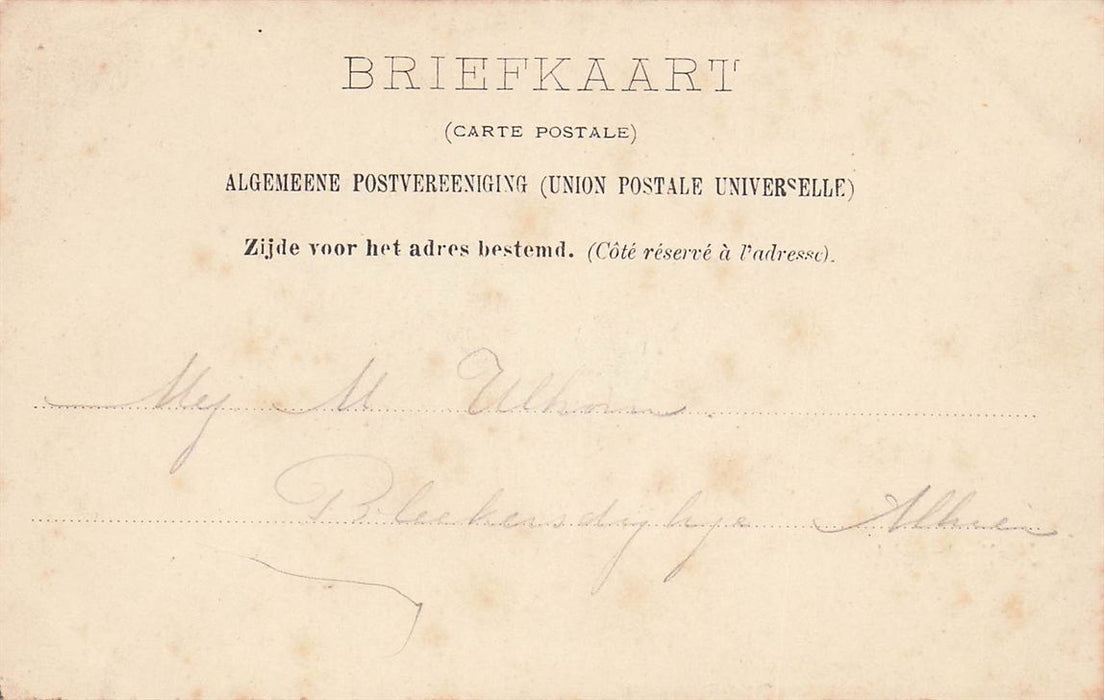 BRIEFKAART
(CARTE POSTALE)
ALGEMEENE POSTVEREENIGING (UNION POSTALE UNIVERSELLE)
Zijde voor het adres bestemd. (Côté réservé à l'adresse).
Mej M Ulhorn
Bleekersdijkje Alhier